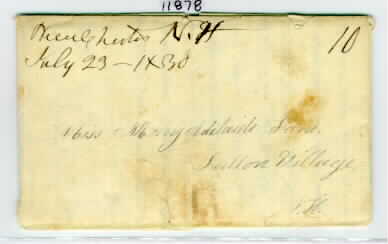 11878
Manchester N.H
July 23 - 1830
10
Miss Mary Adelaide
Sutton Village
N.H.